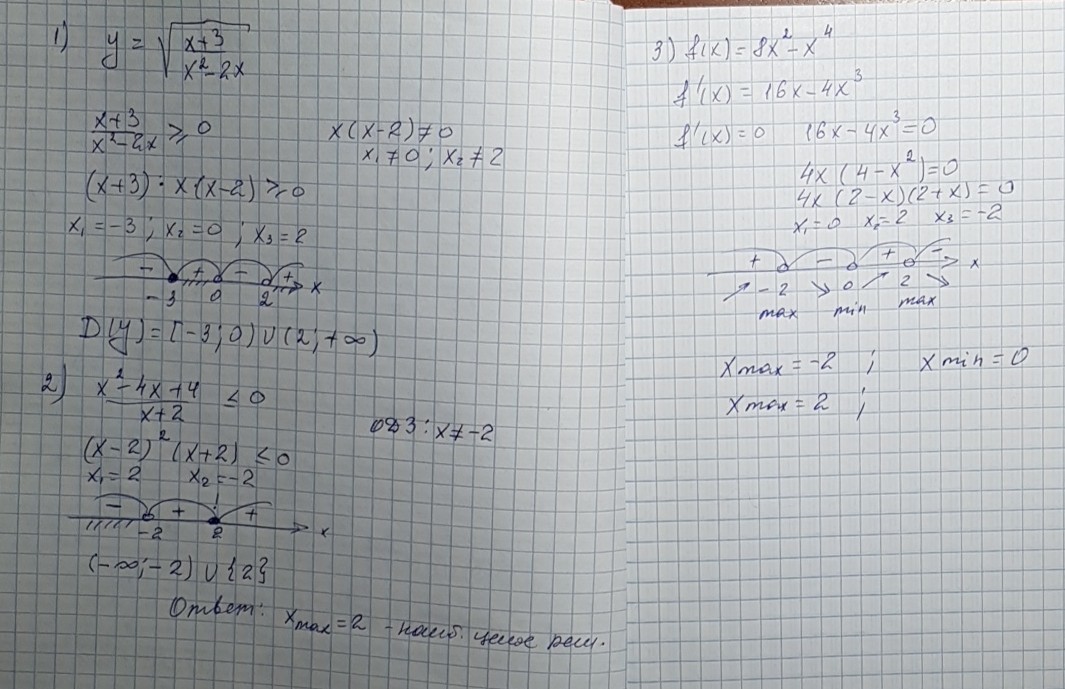 1) y = √((x+3)/(x²-2x))
(x+3)/(x²-2x) ≥ 0 x(x-2)≠0
x₁≠0; x₂≠2
(x+3)·x(x-2)≥0
x₁=-3; x₂=0; x₃=2
- + - + x
-3 0 2
D(y)=[-3;0)∪(2;+∞)
2) (x²-4x+4)/(x+2) ≤ 0
ОДЗ: x≠-2
(x-2)²(x+2) ≤0
x₁=2 x₂=-2
- + + x
-2 2
(-∞;-2)∪{2}
Ответ: xmax=2 - наиб. целое реш.
3) f(x)=8x²-x⁴
f'(x)=16x-4x³
f'(x)=0 16x-4x³=0
4x(4-x²)=0
4x(2-x)(2+x)=0
x₁=0 x₂=2 x₃=-2
+ - + - x
↗ -2 ↘ 0 ↗ 2 ↘
max min max
xmax=-2 ; xmin=0
xmax=2 ;